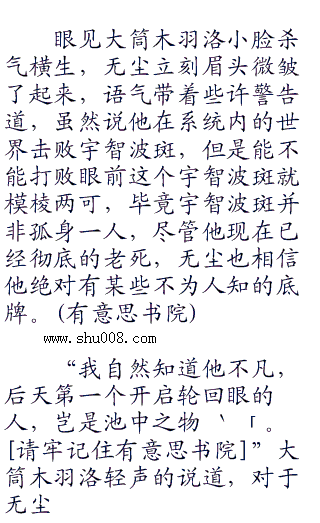 眼见大筒木羽洛小脸杀
气横生，无尘立刻眉头微皱
了起来，语气带着些许警告
道，虽然说他在系统内的世
界击败宇智波斑，但是能不
能打败眼前这个宇智波斑就
模棱两可，毕竟宇智波斑并
非孤身一人，尽管他现在已
经彻底的老死，无尘也相信
他绝对有某些不为人知的底
牌。(有意思书院)
www.shu008.com
“我自然知道他不凡，
后天第一个开启轮回眼的
人，岂是池中之物｀「。
[请牢记住有意思书院]”大
筒木羽洛轻声的说道，对于
无尘